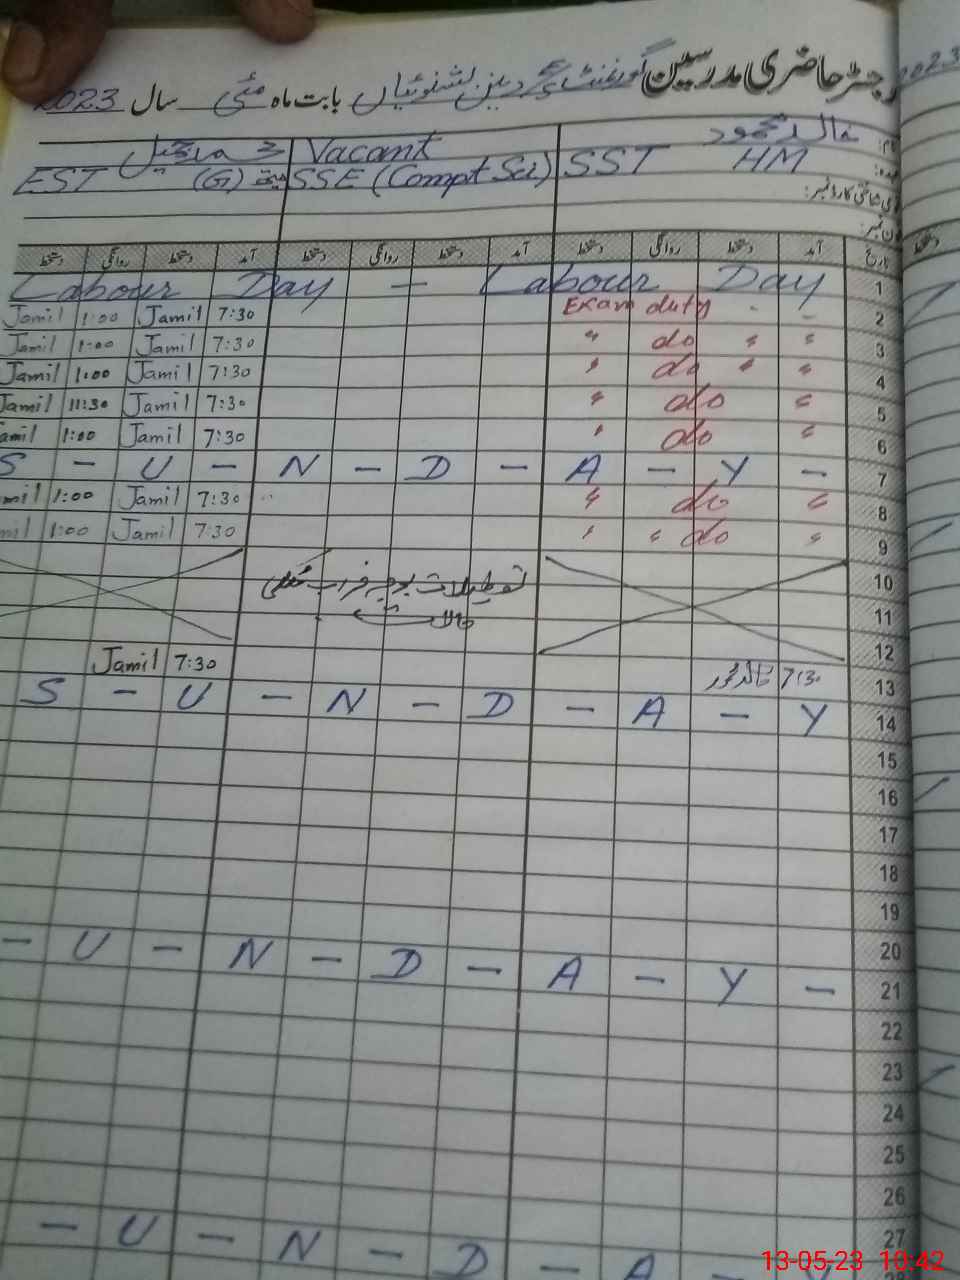 رجسٹر حاضری مدرسین گورنمنٹ بابت ماہ مئی سال 2023
2023
نام: خالد محمود Vacant محمد جمیل
عہدہ: SST HM SSE (Compt Sci) EST (G)
قومی شناختی کارڈ نمبر:
فون نمبر:
تاریخ آمد دستخط روانگی دستخط آمد دستخط روانگی دستخط آمد دستخط روانگی دستخط
دستخط
Labour Day — Labour Day 1
Jamil 1:00 Jamil 7:30 Exam duty - - 2
Jamil 1:00 Jamil 7:30 " do " " 3
Jamil 1:00 Jamil 7:30 " do " " 4
Jamil 11:30 Jamil 7:30 " do " 5
amil 1:00 Jamil 7:30 " do " 6
S - U - N - D - A - Y - 7
mil 1:00 Jamil 7:30 " do " 8
mil 1:00 Jamil 7:30 " " do " 9
تعطیلات بوجہ خراب ملکی 10
حالات 11
12
Jamil 7:30 خالد محمود 7:30 13
S - U - N - D - A - Y 14
15
16
17
18
19
20
- U - N - D - A - Y - 21
22
23
24
25
26
- U - N - D - A 27
13-05-23 10:42